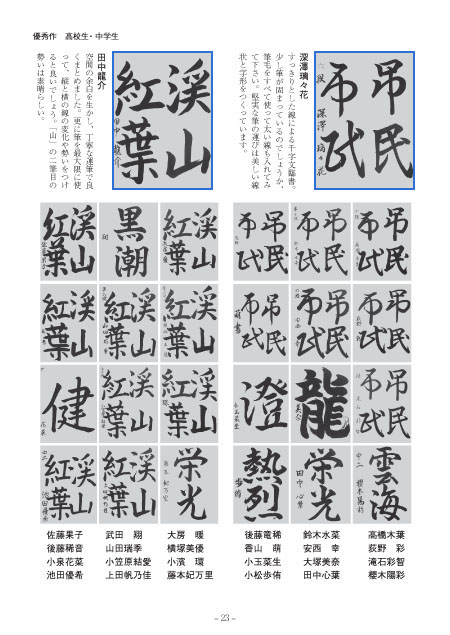 優秀作　高校生・中学生
深澤璃々花
すっきりとした線による千字文臨書。
少し筆が固まっているのでしょうか、
筆毛をすべて使って太い線も入れてみ
て下さい。堅実な筆の運びは美しい線
状と字形をつくっています。
弔民
伐
深澤璃々花
田中龍介
空間の余白を生かし、丁寧な運筆で良
くまとめました。更に筆を最大限に使
って、縦と横の線の変化や勢いをつけ
ると良いでしょう。「山」の二筆目の
勢いは素晴らしい。
渓山
紅葉
田中龍介
弔民
伐
弔民
伐
弔民
伐
渓山
紅葉
黒潮
渓山
紅葉
弔民
伐
弔民
伐
弔民
伐
渓山
紅葉
渓山
紅葉
渓山
紅葉
弔民
伐
龍
澄
渓山
紅葉
渓山
紅葉
健
雲海
栄光
熱烈
栄光
渓山
紅葉
渓山
紅葉
高橋木葉
荻野　彩
滝石彩智
櫻木陽彩
鈴木水菜
安西　幸
大塚美奈
田中心葉
後藤竜稀
香山　萌
小玉菜生
小松歩侑
大房　暖
横塚美優
小濱　環
藤本妃万里
武田　翔
山田瑞季
小笠原結愛
上田帆乃佳
佐藤果子
後藤稀音
小泉花菜
池田優希
– 23 –